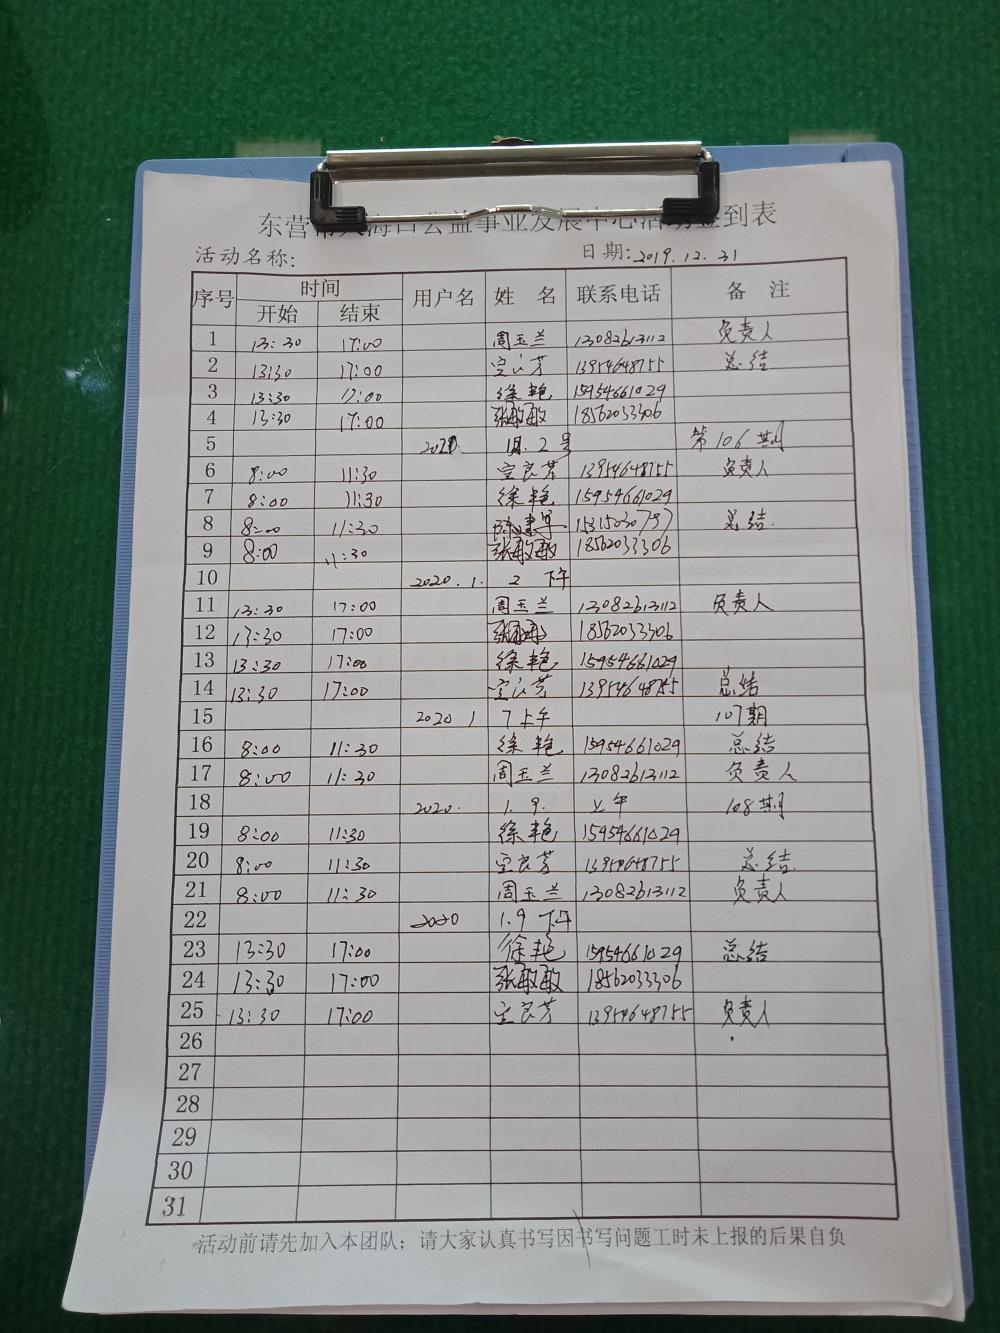 东营市大海口公益事业发展中心活动签到表
活动名称: 日期: 2019.12.31
序号 时间 用户名 姓 名 联系电话 备 注
开始 结束
1 13:30 17:00 周玉兰 13082613112 负责人
2 13:30 17:00 宝良芳 13954648755 总结
3 13:30 17:00 徐艳 15954661029
4 13:30 17:00 张敏敏 18562033306
5 2020 1月.2号 第106期
6 8:00 11:30 宝良芳 13954648755 负责人
7 8:00 11:30 徐艳 15954661029
8 8:00 11:30 陈建华 总结
9 8:00 11:30 张敏敏 18562033306
10 2020.1. 2 下午
11 13:30 17:00 周玉兰 13082613112 负责人
12 13:30 17:00 张敏敏 18562033306
13 13:30 17:00 徐艳 15954661029
14 13:30 17:00 宝良芳 13954648755 总结
15 2020 1 7上午 107期
16 8:00 11:30 徐艳 15954661029 总结
17 8:00 11:30 周玉兰 13082613112 负责人
18 2020. 1.9. 上午 108期
19 8:00 11:30 徐艳 15954661029
20 8:00 11:30 宝良芳 13954648755 总结
21 8:00 11:30 周玉兰 13082613112 负责人
22 2020 1.9 下午
23 13:30 17:00 徐艳 15954661029 总结
24 13:30 17:00 张敏敏 18562033306
25 13:30 17:00 宝良芳 13954648755 负责人
26
27
28
29
30
31
活动前请先加入本团队; 请大家认真书写因书写问题工时未上报的后果自负